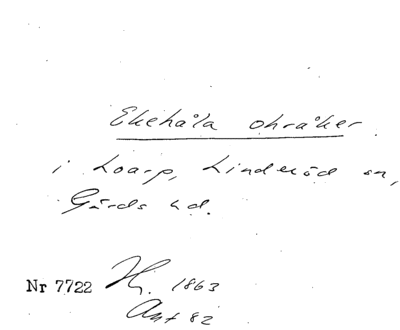 Ekehåla ohråker
i Loarp, Linderöd sn,
Gärds hd.
Nr 7722 Hj. 1863
Ant 82